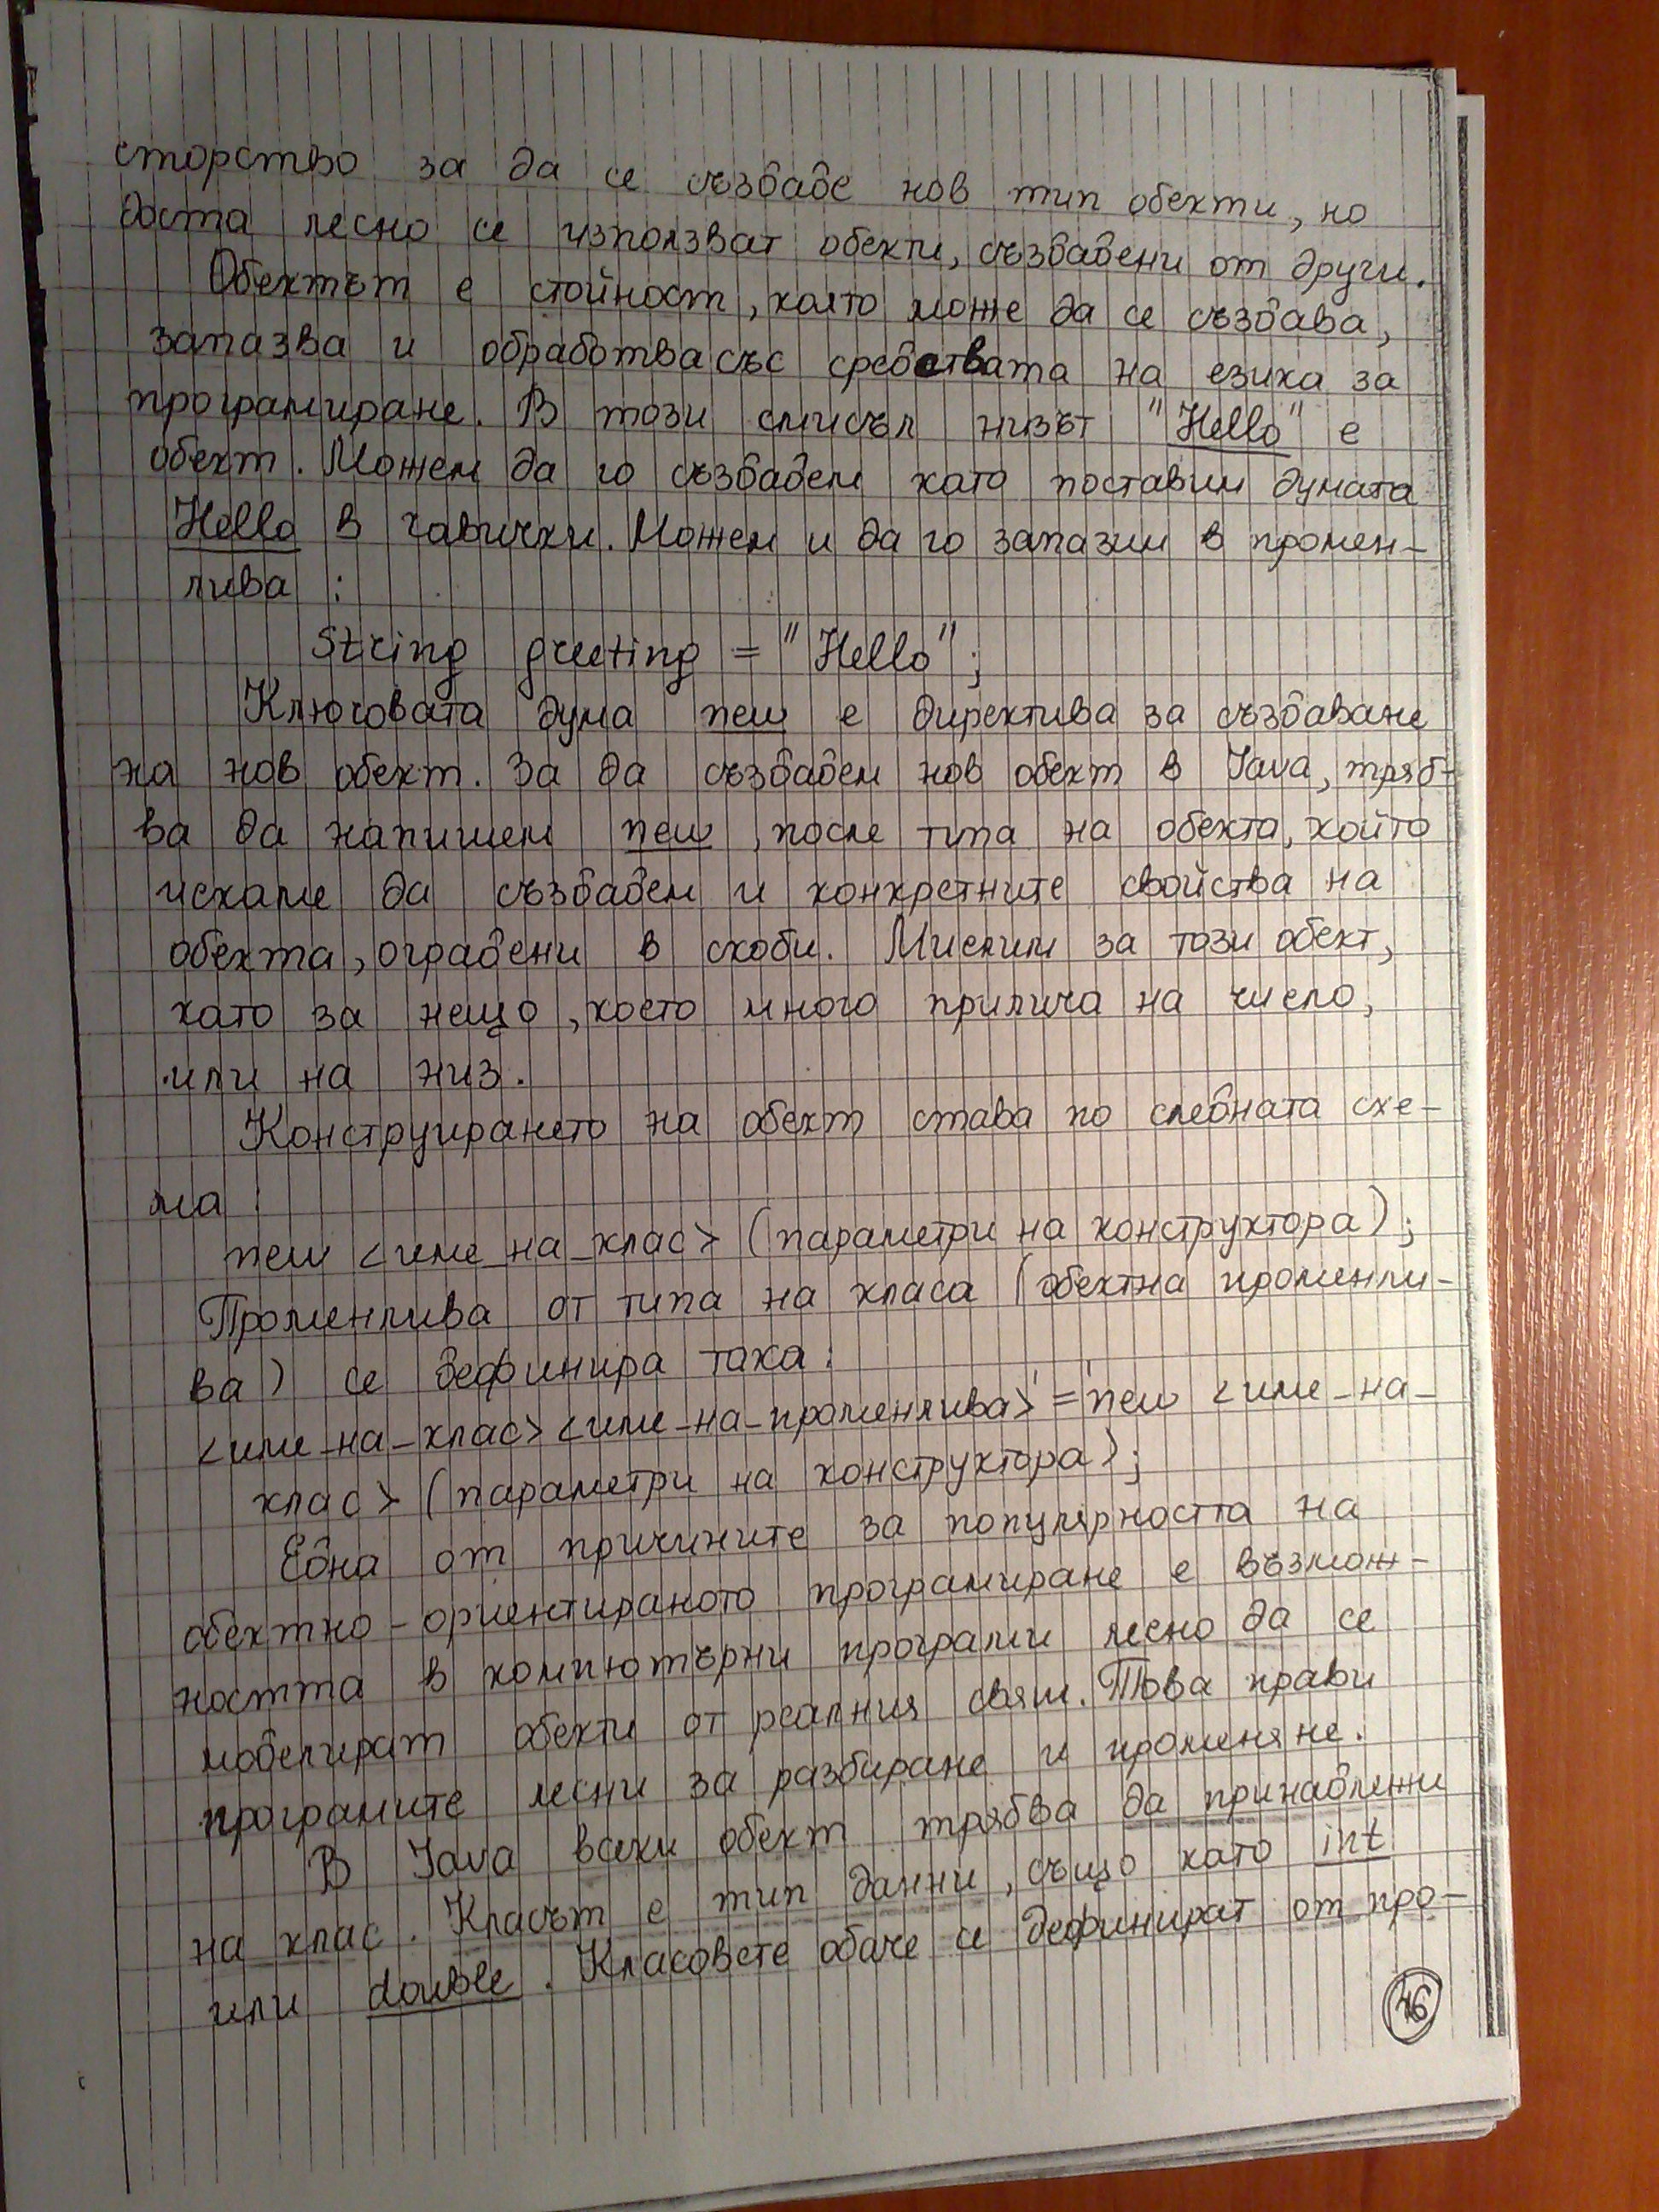 сторство за да се създаде нов тип обекти, но
доста лесно се използват обекти, създадени от други.
Обектът е стойност, която може да се създава,
запазва и обработва със средствата на езика за
програмиране. В този смисъл низът "Hello" е
обект. Можем да го създадем като поставим думата
Hello в кавички. Можем и да го запазим в промен-
лива :
String greeting = "Hello";
Ключовата дума new е директива за създаване
на нов обект. За да създадем нов обект в Java, тряб-
ва да напишем new, после типа на обекта, който
искаме да създадем и конкретните свойства на
обекта, оградени в скоби. Мислим за този обект,
като за нещо, което много прилича на число,
или на низ.
Конструирането на обект става по следната схе-
ма :
new <име_на_клас> (параметри на конструктора);
Променлива от типа на класа (обектна променли-
ва) се дефинира така:
<име-на-клас> <име-на-променлива> = new <име-на-
клас> (параметри на конструктора);
Една от причините за популярността на
обектно-ориентираното програмиране е възмож-
ността в компютърни програми лесно да се
моделират обекти от реалния свят. Това прави
програмите лесни за разбиране и променяне.
В Java всеки обект трябва да принадлежи
на клас. Класът е тип данни, също като int
или double. Класовете обаче се дефинират от про-
46